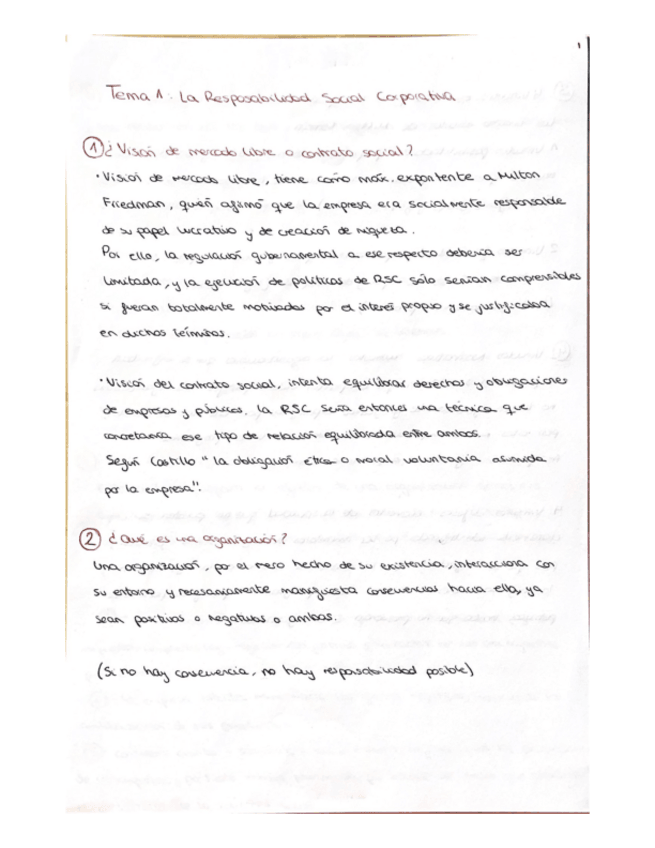 1
Tema 1: La Resposabilidad Social Corporativa
① ¿Visión de mercado libre o contrato social?
· Visión de mercado libre, tiene como max. exportentente a Milton
Friedman, quén afirmó que la empresa era socialmente responsable
de su papel lucrativo y de creación de riqueta.
Por ello, la regulación gubernamental a ese respecto debería ser
limitada, y la ejecución de políticas de RSC sólo serían comprensibles
si fueran totalmente motivadas por el interés propio y se justificaba
en dichos términos.
· Visión del contrato social, intenta equilibrar derechos y obligaciones
de empresas y públicos, la RSC sería entonces una técnica que
concretaría ese tipo de relación equilibrada entre ambos.
Según Castillo "la obligación ética o moral voluntaria asumida
por la empresa".
② ¿Qué es una organización?
Una organización, por el mero hecho de su existencia, interacciona con
su entorno y necesariamente consecuencias hacia ello, ya
sean positivas o negativas o ambas.
(Si no hay consecuencia, no hay responsabilidad posible)